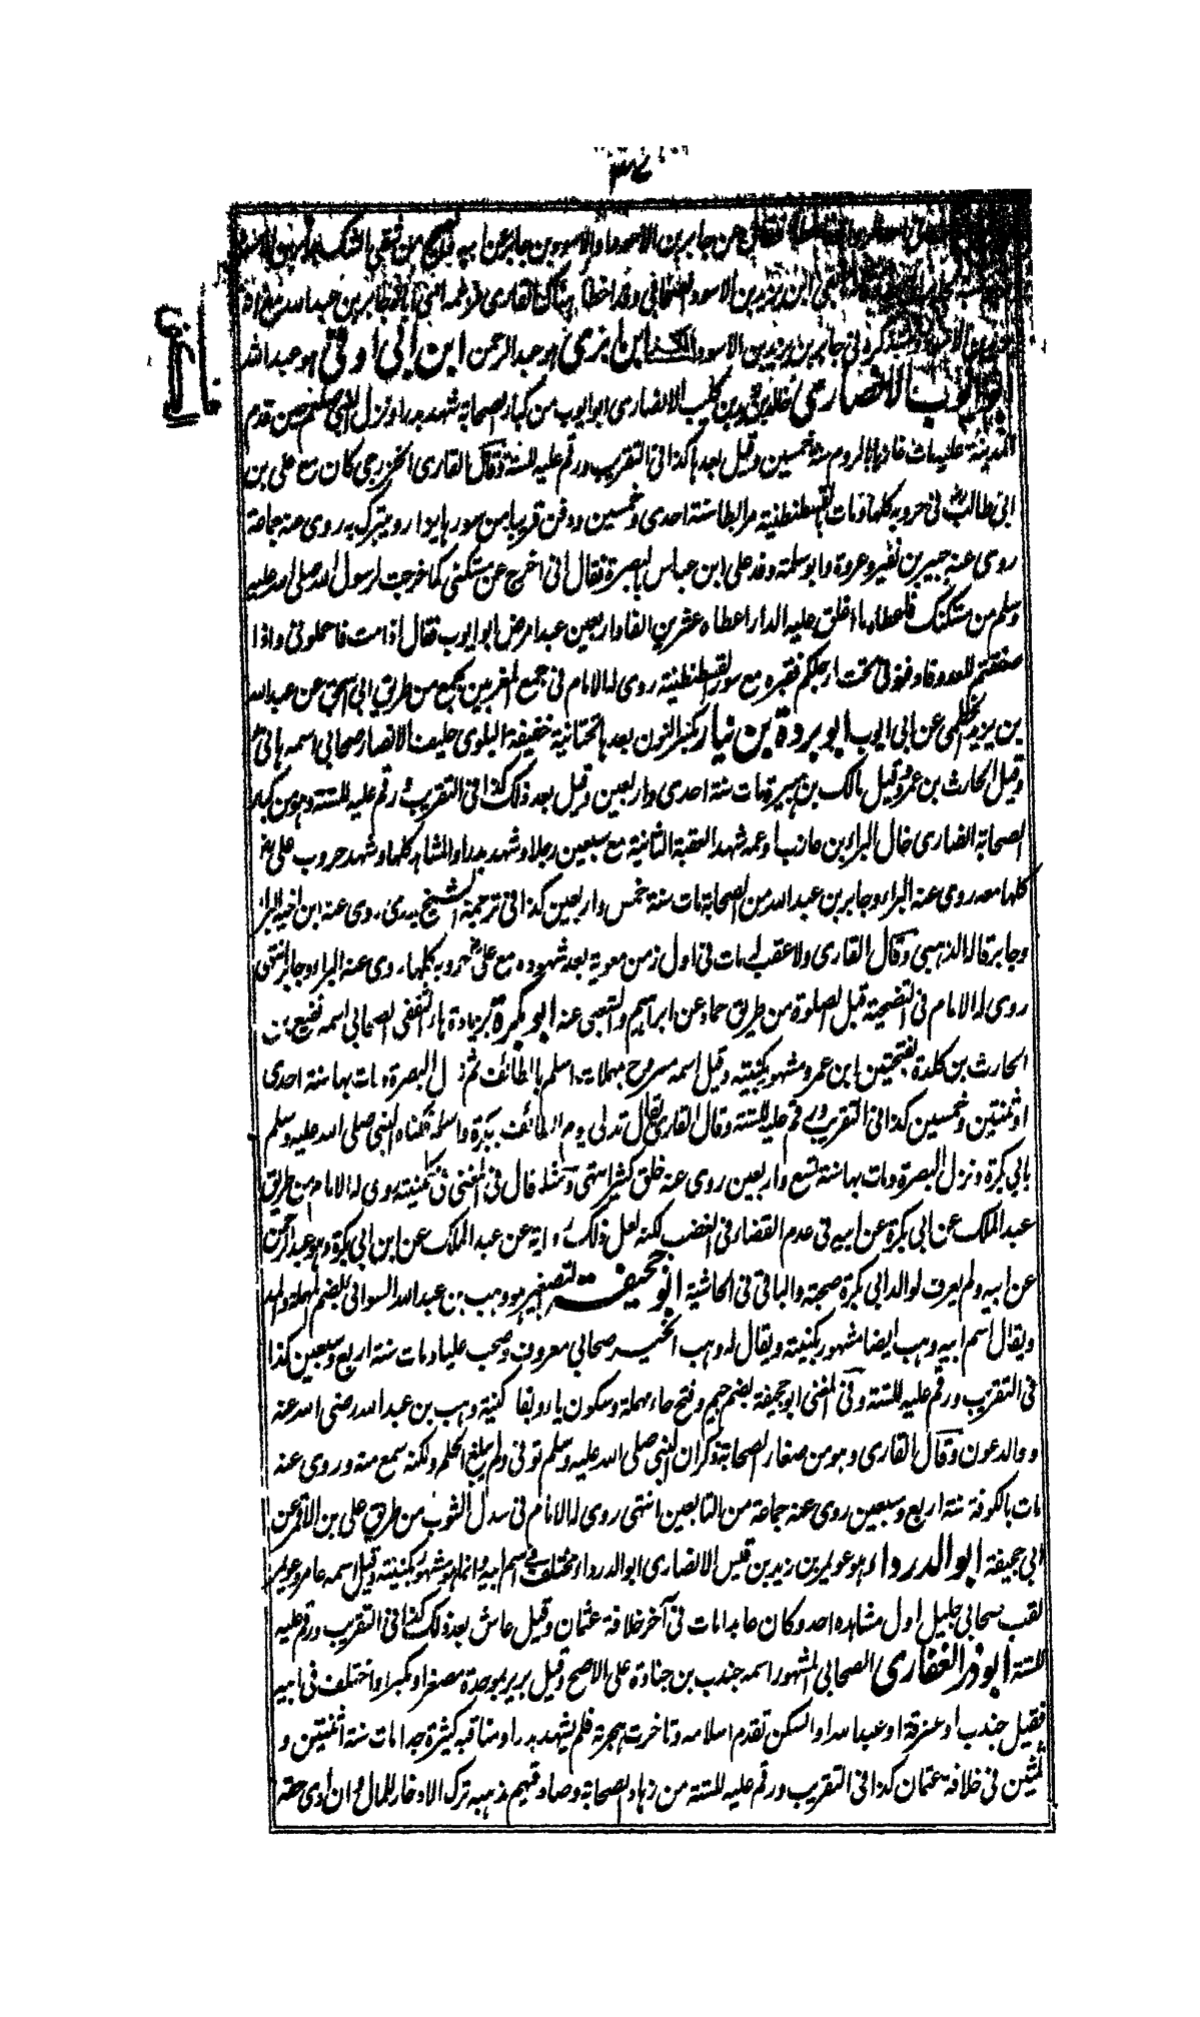 ٣٤
فقال عن جابر بن الاسود او الاسود بن جابر عن ابيه
ابن يزيد بن الاسود الصحابى وقد اخطأ هناك القارى فزعمه جابر بن عبد الله
فى جابر بن يزيد بن الاسود الكنى ابن ابزى هو عبد الرحمن ابن ابى اوفى هو عبد الله
ابو ايوب الانصارى خالد بن زيد بن كليب الانصارى ابو ايوب من كبار الصحابة شهد بدرا ونزل النبى صلعم حين قدم
المدينة عليه مات غازيا بالروم سنة خمسين وقيل بعدها كذا فى التقريب ورقم عليه للستة وقال القارى الخزرجى كان مع على بن
ابى طالب فى حروبه كلها ومات بالقسطنطنية مرابطا سنة احدى وخمسين ودفن قريبا من سورها يزار ويتبرك به روى عنه جماعة
روى عنه جبير بن نفير وعروة وابو سلمة وفد على ابن عباس البصرة فقال انى اخرج عن مسكنى كما خرجت لرسول الله صلى الله عليه
وسلم من مسكنك فاعطاه ما اغلق عليه الدار اعطاه عشرين الفا واربعين عبدا مرض ابو ايوب فقال اذا مت فاحملونى واذا
صففتم للعدو فادفنونى تحت ارجلكم فقبره مع سور القسطنطنية روى له الامام فى جمع المغربين بجمع من طريق ابى اسحق عن عبد الله
بن يزيد الخطمى عن ابى ايوب ابو بردة بن نيار بكسر النون بعدها تحتانية خفيفة البلوى حليف الانصار صحابى اسمه هانئ
وقيل الحارث بن عمرو وقيل مالك بن هبيرة مات سنة احدى واربعين وقيل بعد ذلك كذا فى التقريب ورقم عليه للستة وهو من كبار
الصحابة انصارى خال البراء بن عازب او عمه شهد العقبة الثانية مع سبعين رجلا وشهد بدرا والمشاهد كلها وشهد حروب على
كلها معه روى عنه البراء وجابر بن عبد الله من الصحابة مات سنة خمس واربعين كذا فى ترجمة الشيخ روى عنه ابن اخيه البراء
وجابر قاله الذهبى وقال القارى ولا عقب له مات فى اول زمن معوية بعد شهوده مع على حروبه كلها روى عنه البراء وجابر انتهى
روى له الامام فى التضحية قبل الصلوة من طريق حماد عن ابراهيم والشعبى عنه ابو بكرة بزيادة هاء الثقفى الصحابى اسمه نفيع بن
الحارث بن كلدة بفتحتين ابن عمرو مشهور بكنيته وقيل اسمه مسروح بمهملات اسلم بالطائف ثم نزل البصرة ومات بها سنة احدى
او ثنتين وخمسين كذا فى التقريب ورقم عليه للستة وقال القارى يقال تدلى يوم الطائف ببكرة واسلم فكناه النبى صلى الله عليه وسلم
بابى بكرة ونزل البصرة ومات بها سنة تسع واربعين روى عنه خلق كثير انتهى ومثله قال فى المغنى فى تكنيته روى له الامام من طريق
عبد الملك عن ابى بكرة عن ابيه فى عدم القضاء فى الغضب لكنه لعل ذلك رواية عن عبد الملك عن ابن ابى بكرة وهو عبد الرحمن
عن ابيه ولم يعرف لوالد ابى بكرة صحبة والباقى فى الحاشية ابو جحيفة بالتصغير هو وهب بن عبد الله السوائى بالضم المهملة والمد
ويقال اسم ابيه وهب ايضا مشهور بكنيته ويقال له وهب الخير صحابى معروف وصحب عليا ومات سنة اربع وسبعين كذا
فى التقريب ورقم عليه للستة وفى المغنى ابو جحيفة بضم جيم وفتح حاء مهملة وسكون ياء وبفاء كنية وهب بن عبد الله رضى الله عنه
ووالد عون وقال القارى وهو من صغار الصحابة ذكر ان النبى صلى الله عليه وسلم توفى ولم يبلغ الحلم ولكنه سمع منه وروى عنه
مات بالكوفة سنة اربع وسبعين روى عنه جماعة من التابعين انتهى روى له الامام فى سدل الثوب من طريق على بن الاقمر عن
ابى جحيفة ابو الدرداء هو عويمر بن زيد بن قيس الانصارى ابو الدرداء مختلف فى اسم ابيه وانما هو مشهور بكنيته وقيل اسمه عامر وعويمر
لقب صحابى جليل اول مشاهده احد وكان عابدا مات فى آخر خلافة عثمان وقيل عاش بعد ذلك كذا فى التقريب ورقم عليه
للستة ابو ذر الغفارى الصحابى المشهور اسمه جندب بن جنادة على الاصح وقيل برير بموحدة مصغرا او مكبرا واختلف فى ابيه
فقيل جندب او عشرقة او عبد الله او السكن تقدم اسلامه وتاخرت هجرته فلم يشهد بدرا ومناقبه كثيرة جدا مات سنة اثنتين و
ثلثين فى خلافة عثمان كذا فى التقريب ورقم عليه للستة من زهاد الصحابة وصادقيهم مذهبه ترك الادخار للمال وان ادى حقه